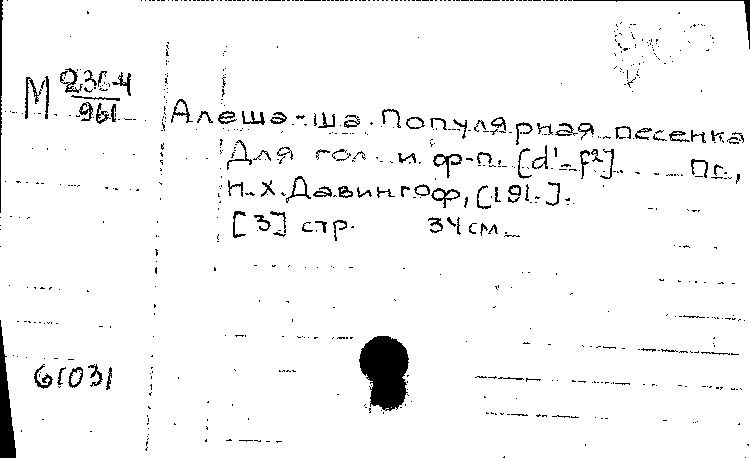 М 236-4
961
Алеша-ша. Популярная песенка
Для гол. и ф-п. [d'-f²]. Пг.,
Н.Х. Давингоф, [191.].
[3] стр. 34 см.
61031